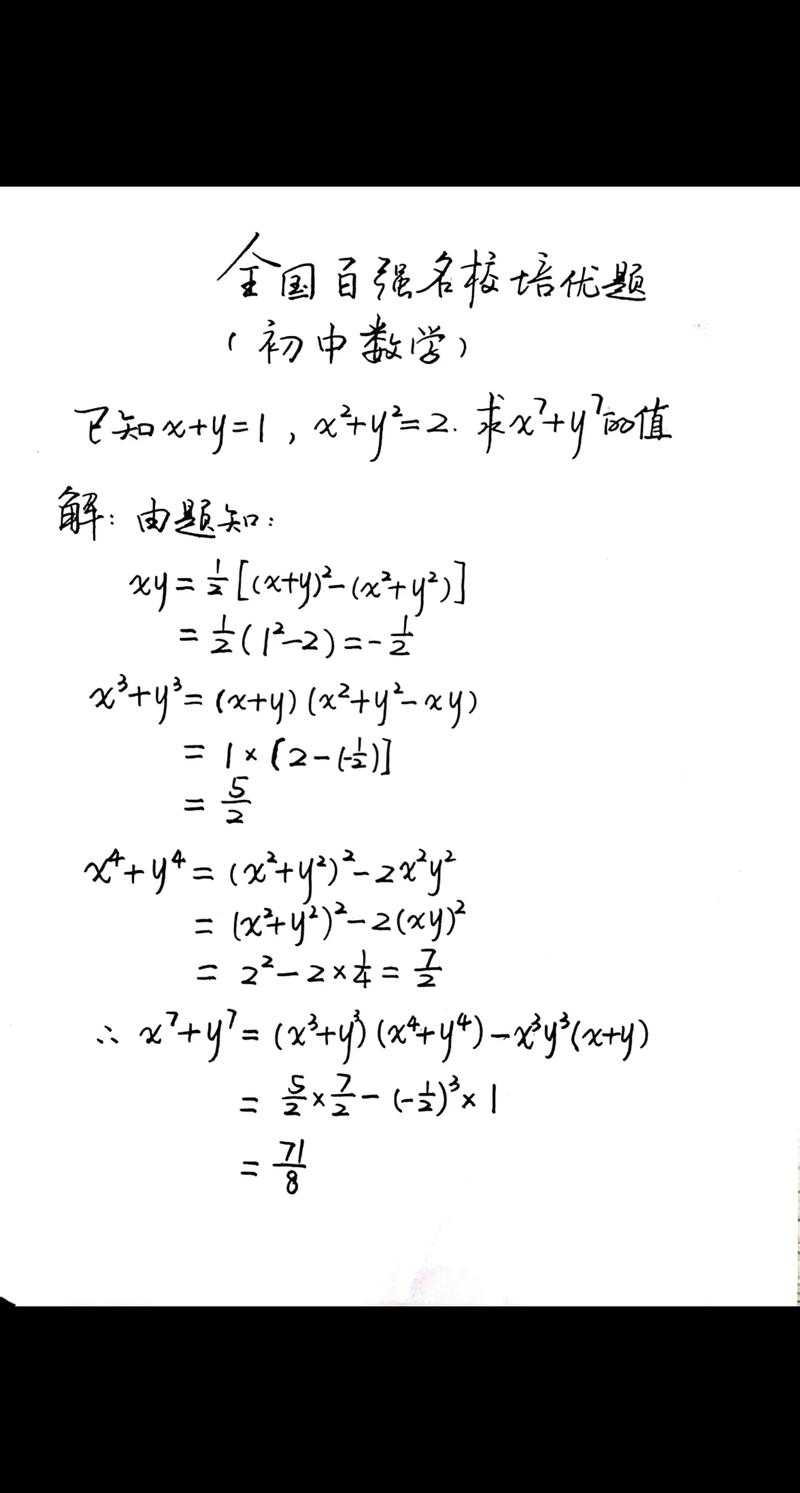 全国百强名校培优题
(初中数学)
已知x+y=1，x²+y²=2. 求x⁷+y⁷的值
解: 由题知:
xy=½[(x+y)²-(x²+y²)]
=½(1²-2)=-½
x³+y³=(x+y)(x²+y²-xy)
=1×[2-(-½)]
=5/2
x⁴+y⁴=(x²+y²)²-2x²y²
=(x²+y²)²-2(xy)²
=2²-2×¼=7/2
∴ x⁷+y⁷=(x³+y³)(x⁴+y⁴)-x³y³(x+y)
=5/2×7/2-(-½)³×1
=71/8